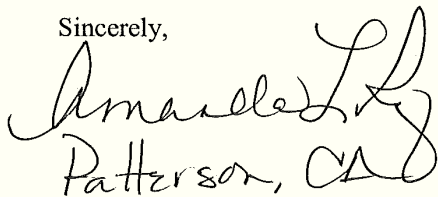 Sincerely,
Amanda L.
Patterson,